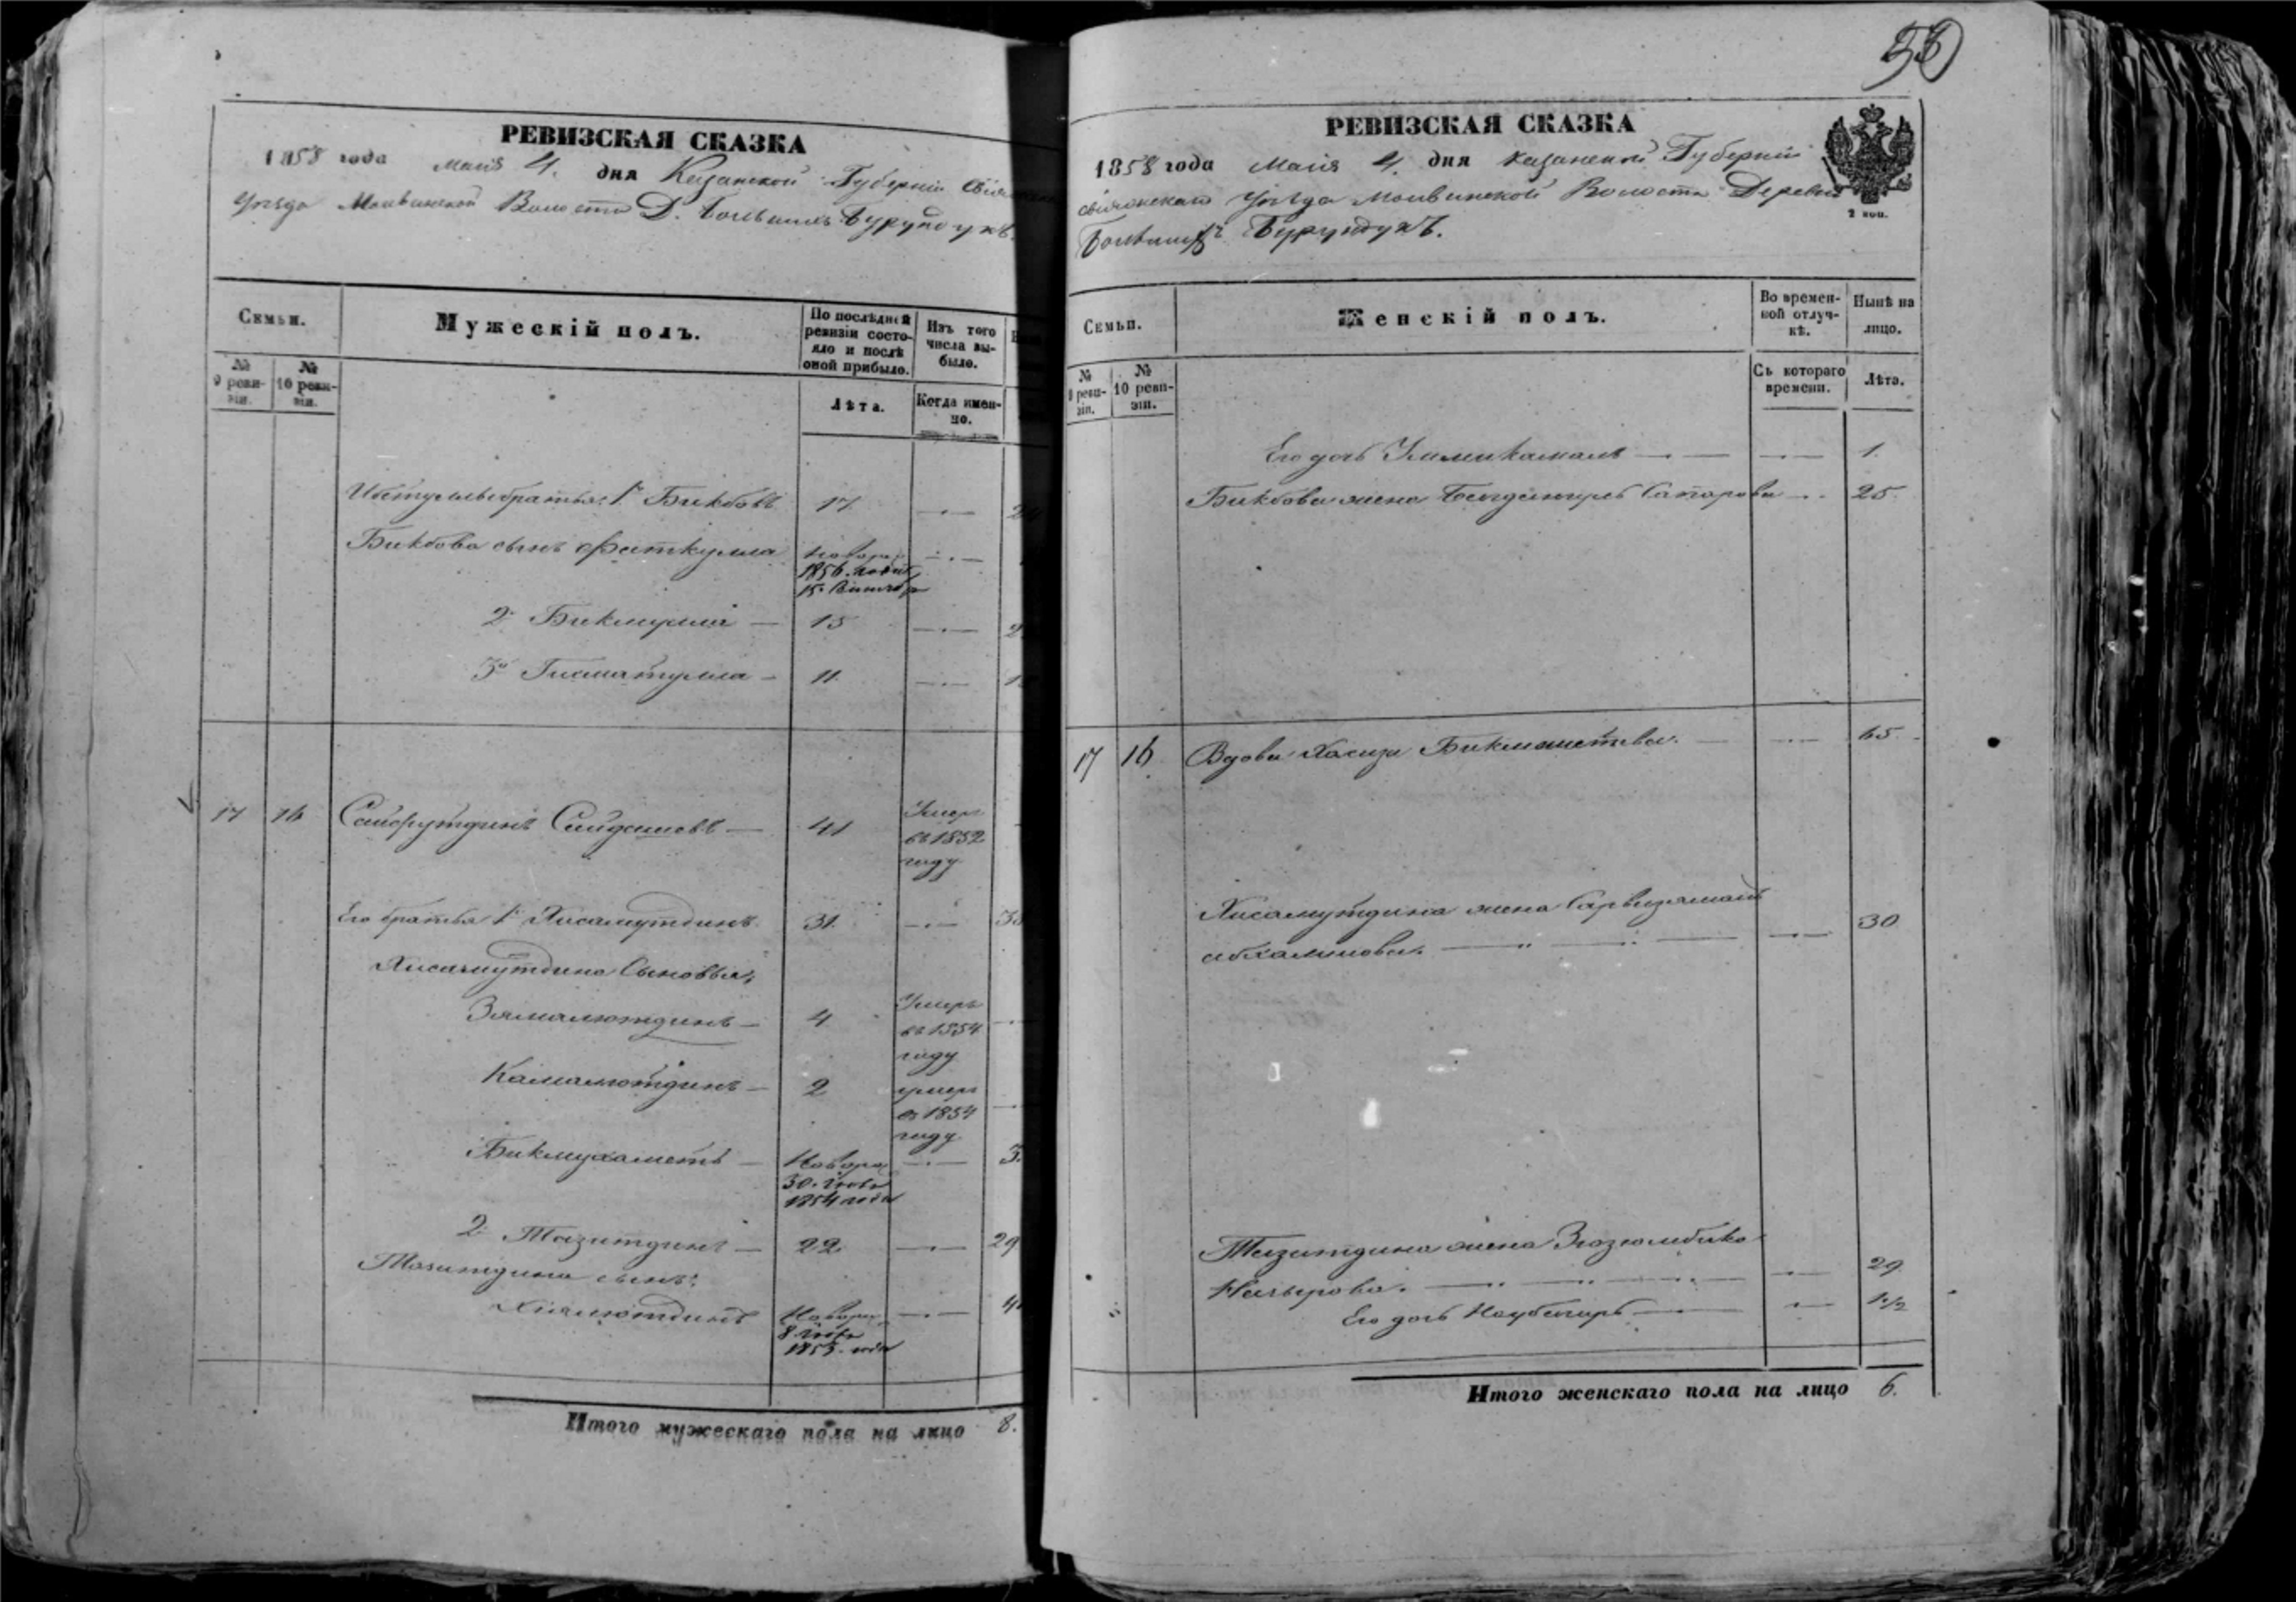 РЕВИЗСКАЯ СКАЗКА
1858 года Маія 4. дня Казанской Губерніи
Уѣзда Молвинской Волости Д. Большихъ Бурундукъ.
Семьи.
Мужескій полъ.
По послѣдней ревизіи состояло и послѣ оной прибыло.
Изъ того числа выбыло.
№ 9 ревизіи.
№ 10 ревизіи.
Лѣта.
Когда именно.
братья: 1й Бикбовъ 17
Бикбова сынъ Фаткулла новорож
1856. года
15.
2й Бикмулла — 15
3й Гисматулла — 11
17 16 Сайфутдинъ Сайдашевъ — 41 Умеръ
въ 1852
году
Его братья 1й Хисамутдинъ 31.
Хисамутдина Сыновья;
Зямалютдинъ — 4 Умеръ
въ 1854
году
Камалютдинъ — 2 умеръ
въ 1854
году
Бикмухаметъ — Новорож 3.
30.
1854 года
2й Тазитдинъ — 22. 29
Тазитдина сынъ:
Новорож
8
Итого мужескаго пола на лицо 8.
53
РЕВИЗСКАЯ СКАЗКА
1858 года Маія 4. дня Казанской Губерніи
Свіяжскаго Уѣзда Молвинской Волости Деревни
Большихъ Бурундукъ.
2 коп.
Семьи.
Женскій полъ.
Во временной отлучкѣ.
Нынѣ на лицо.
№ 9 ревизіи.
№ 10 ревизіи.
Съ котораго времени.
Лѣта.
Его дочь 1.
Бикбова жена Сапарова 25.
17 16. Вдова Хасиза Бикмаметева. 65
Хисамутдина жена
30
Тазитдина жена Зюзюмбика
29.
Его дочь 1 1/2
Итого женскаго пола на лицо 6.